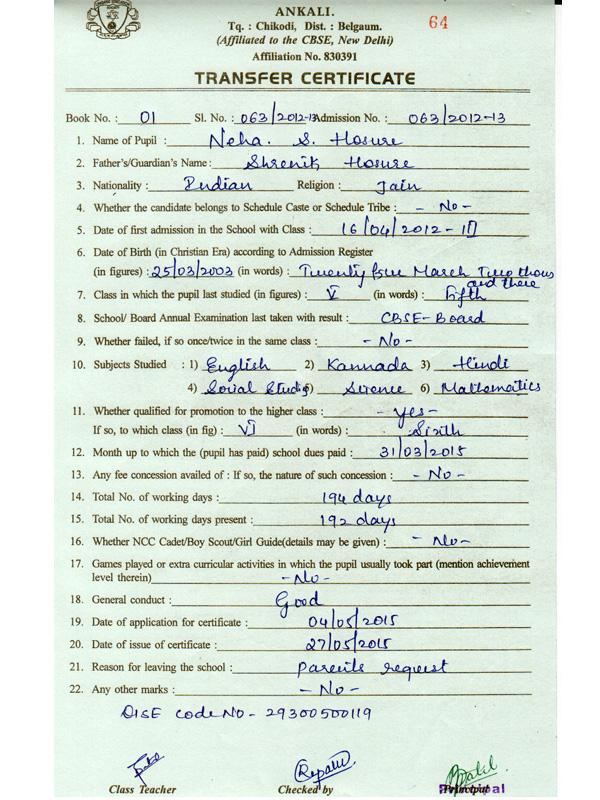 ANKALI.
64
Tq. : Chikodi, Dist. : Belgaum.
(Affiliated to the CBSE, New Delhi)
Affiliation No. 830391
TRANSFER CERTIFICATE
Book No. : 01 Sl. No. : 063/2012-13 Admission No. : 063/2012-13
1. Name of Pupil : Neha. S. Hosure
2. Father's/Guardian's Name : Shrenik Hosure
3. Nationality : Indian Religion : Jain
4. Whether the candidate belongs to Schedule Caste or Schedule Tribe : - No -
5. Date of first admission in the School with Class : 16/04/2012 - III
6. Date of Birth (in Christian Era) according to Admission Register
(in figures) : 25/03/2003 (in words) : Twenty five March Two thous
and three
7. Class in which the pupil last studied (in figures) : V (in words) : Fifth
8. School/ Board Annual Examination last taken with result : CBSE-Board
9. Whether failed, if so once/twice in the same class : - No -
10. Subjects Studied : 1) English 2) Kannada 3) Hindi
4) Social Studies 5) Science 6) Mathematics
11. Whether qualified for promotion to the higher class : - Yes -
If so, to which class (in fig) : VI (in words) : Sixth
12. Month up to which the (pupil has paid) school dues paid : 31/03/2015
13. Any fee concession availed of : If so, the nature of such concession : - No -
14. Total No. of working days : 194 days
15. Total No. of working days present : 192 days
16. Whether NCC Cadet/Boy Scout/Girl Guide(details may be given) : - No -
17. Games played or extra curricular activities in which the pupil usually took part (mention achievement
level therein) - No -
18. General conduct : Good
19. Date of application for certificate : 04/05/2015
20. Date of issue of certificate : 27/05/2015
21. Reason for leaving the school : Parents request
22. Any other marks : - No -
DISE code NO - 29300500119
Class Teacher Checked by Principal